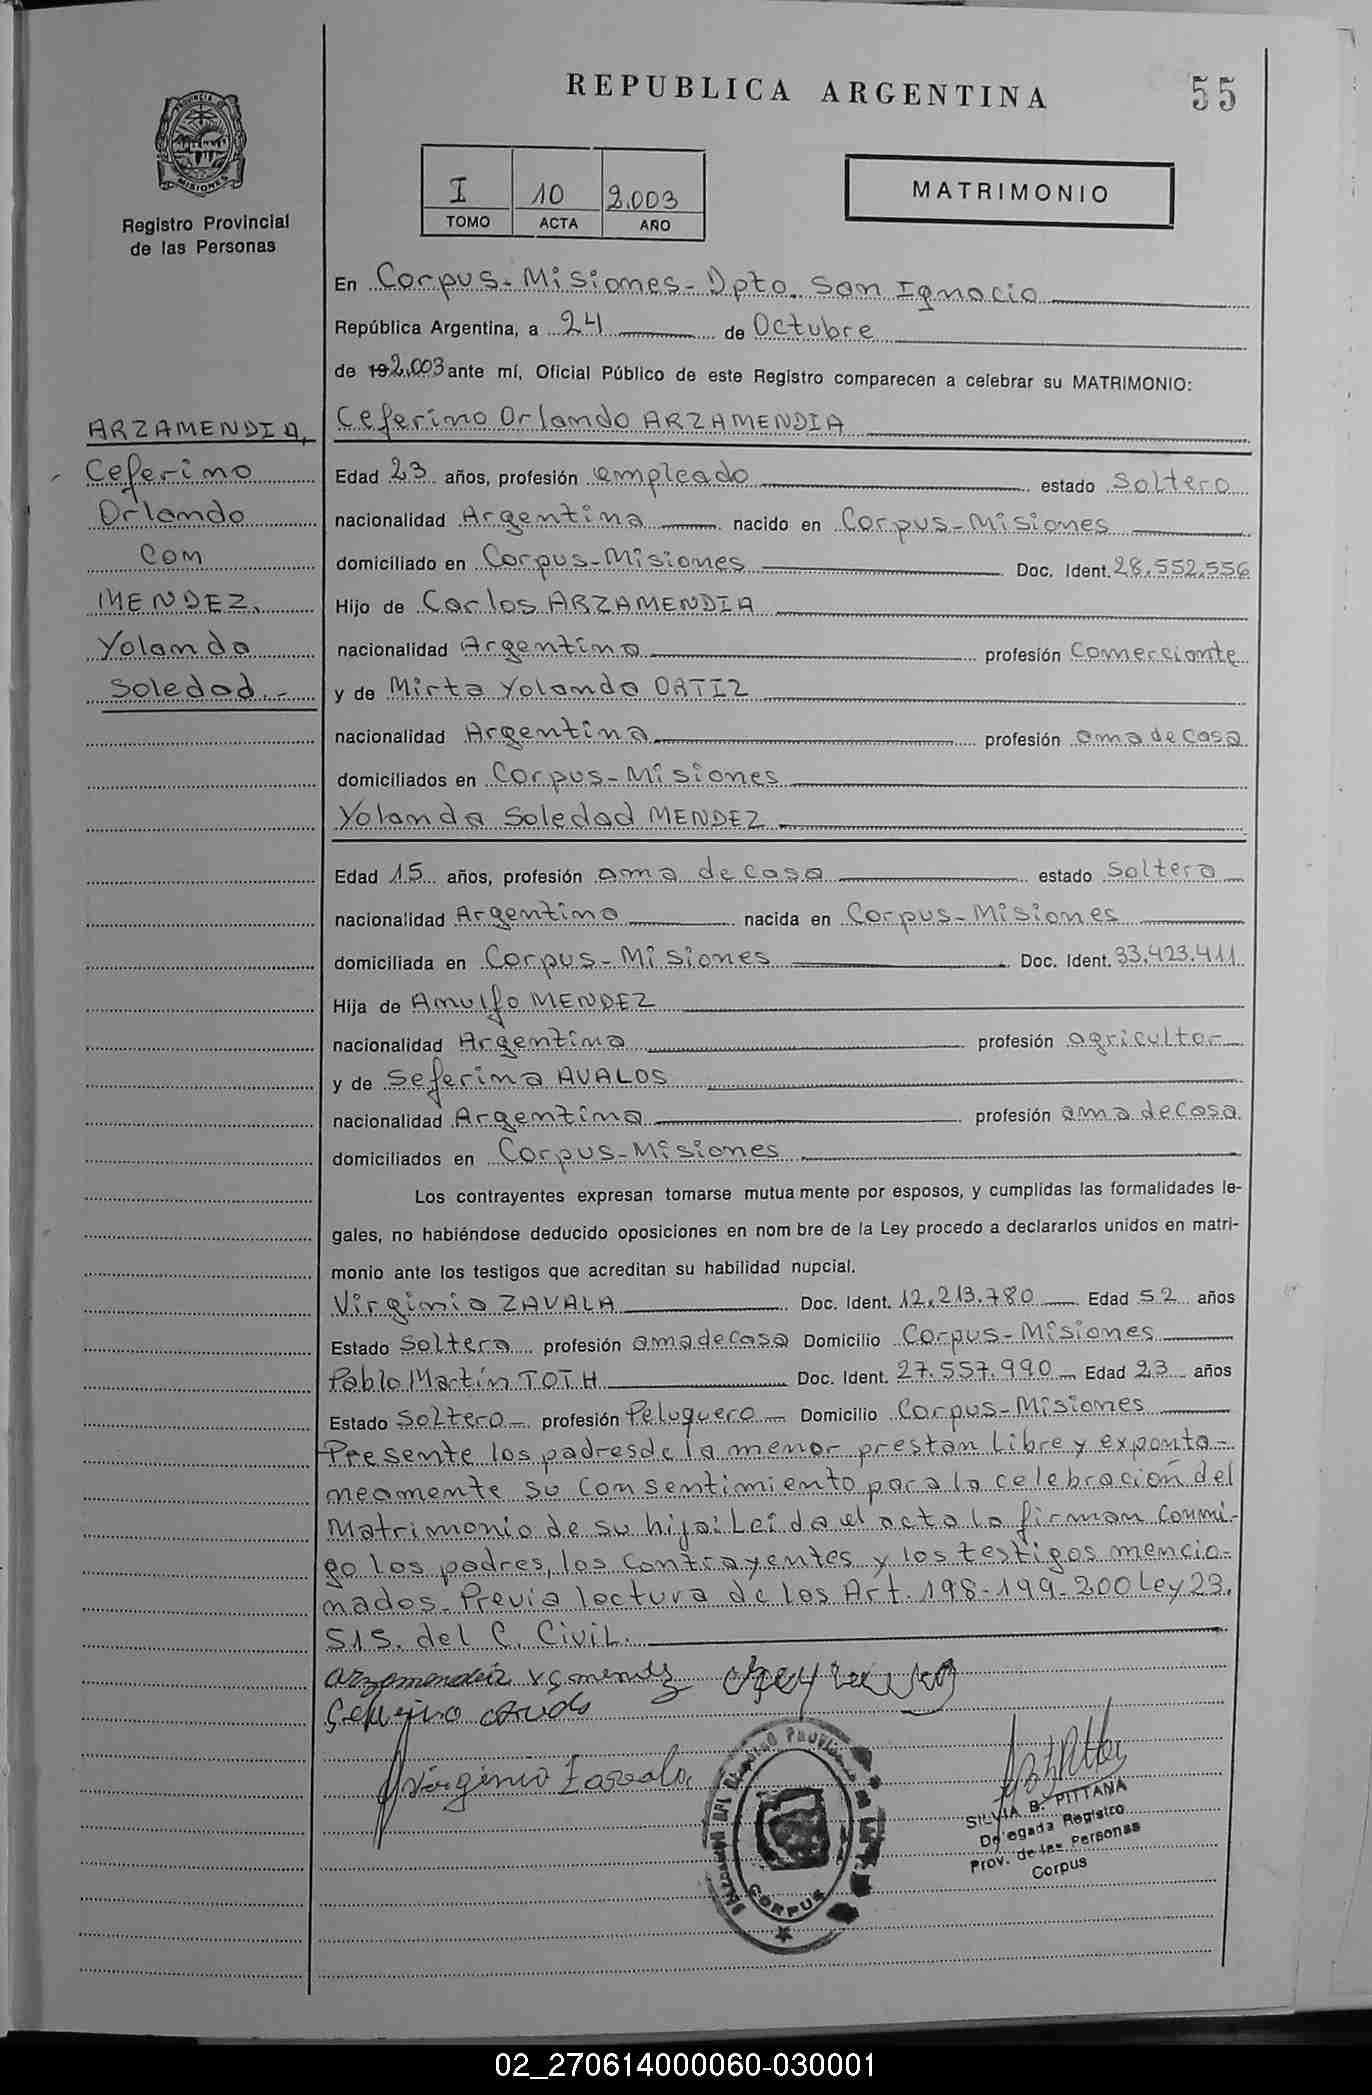 REPUBLICA ARGENTINA
55
PROVINCIA DE
MISIONES
Registro Provincial
de las Personas
I 10 2.003
TOMO ACTA AÑO
MATRIMONIO
En Corpus-Misiones-Dpto. San Ignacio
República Argentina, a 24 de Octubre
de 19 2.003 ante mí, Oficial Público de este Registro comparecen a celebrar su MATRIMONIO:
ARZAMENDIA,
Ceferino
Orlando
con
MENDEZ,
Yolanda
Soledad.-
Ceferino Orlando ARZAMENDIA
Edad 23 años, profesión empleado estado Soltero
nacionalidad Argentina nacido en Corpus-Misiones
domiciliado en Corpus-Misiones Doc. Ident. 28.552.556
Hijo de Carlos ARZAMENDIA
nacionalidad Argentina profesión Comerciante
y de Mirta Yolanda ORTIZ
nacionalidad Argentina profesión ama de casa
domiciliados en Corpus-Misiones
Yolanda Soledad MENDEZ
Edad 15 años, profesión ama de casa estado Soltera
nacionalidad Argentina nacida en Corpus-Misiones
domiciliada en Corpus-Misiones Doc. Ident. 33.423.411
Hija de Arnulfo MENDEZ
nacionalidad Argentina profesión agricultor
y de Seferina AVALOS
nacionalidad Argentina profesión ama de casa
domiciliados en Corpus-Misiones
Los contrayentes expresan tomarse mutua mente por esposos, y cumplidas las formalidades le-
gales, no habiéndose deducido oposiciones en nom bre de la Ley procedo a declararlos unidos en matri-
monio ante los testigos que acreditan su habilidad nupcial.
Virginia ZAVALA Doc. Ident. 12.213.780 Edad 52 años
Estado Soltera profesión ama de casa Domicilio Corpus-Misiones
Pablo Martín TOTH Doc. Ident. 27.557.990 Edad 23 años
Estado Soltero profesión Peluquero Domicilio Corpus-Misiones
Presente los padres de la menor prestan libre y exponta-
neamente su consentimiento para la celebración del
Matrimonio de su hija: Leída el acta la firman conmi-
go los padres, los contrayentes y los testigos mencio-
nados. Previa lectura de los Art. 198-199-200 Ley 23.
515. del C. Civil.
Arzamendia
Virginia Zavala
CORPUS
SILVIA B. PITTANA
Delegada Registro
Prov. de las Personas
Corpus
02_270614000060-030001